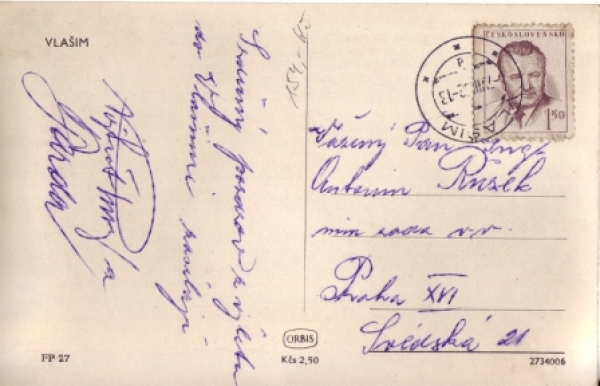 VLAŠIM
Srdečný pozdrav z výletu
do Vlašimi zasílají
a
Jarda
154,-
ČESKOSLOVENSKO
1 50
VLAŠIM
Vážený Pan Ing.
Antonin Růžek
min rada v.v.
Praha XVI
Švédská 21
FP 27
ORBIS
Kčs 2,50
2734006